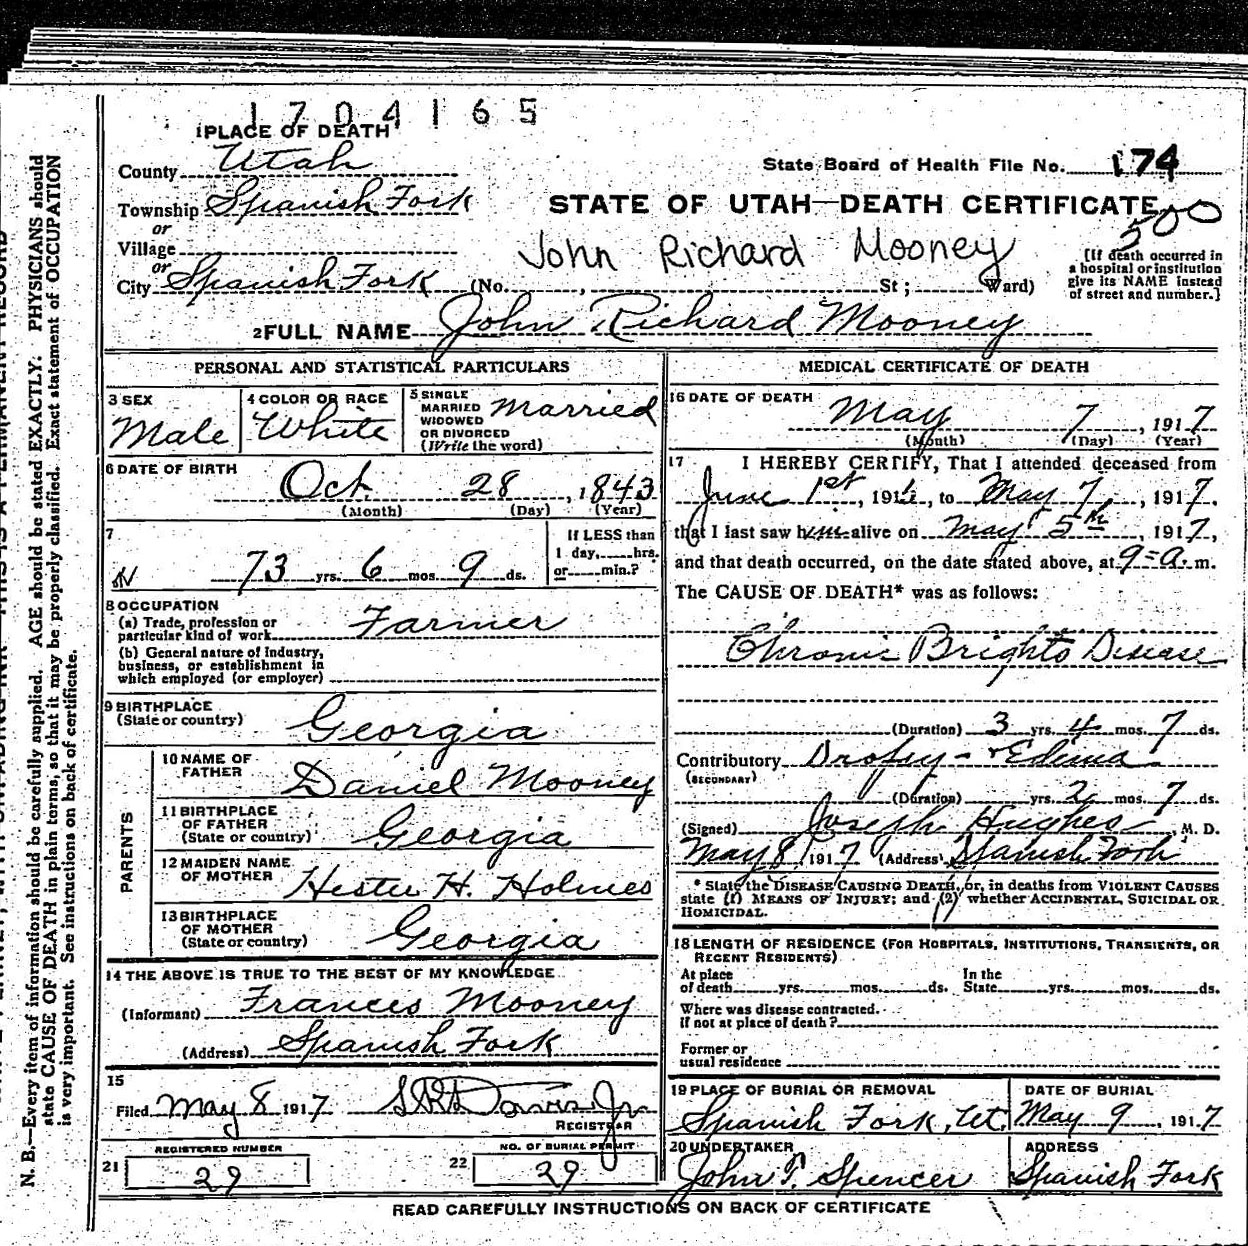 1704165
1 PLACE OF DEATH
County Utah
State Board of Health File No. 174
Township Spanish Fork
STATE OF UTAH—DEATH CERTIFICATE
500
or
Village
John Richard Mooney
or
City Spanish Fork (No. , St ; Ward)
[If death occurred in
a hospital or institution
give its NAME instead
of street and number.]
2 FULL NAME John Richard Mooney
PERSONAL AND STATISTICAL PARTICULARS
3 SEX
Male
4 COLOR OR RACE
White
5 SINGLE
MARRIED
WIDOWED
OR DIVORCED
(Write the word)
Married
6 DATE OF BIRTH
Oct. 28, 1843
(Month) (Day) (Year)
7
73 yrs. 6 mos. 9 ds.
If LESS than
1 day, hrs.
or min.?
8 OCCUPATION
(a) Trade, profession or
particular kind of work Farmer
(b) General nature of Industry,
business, or establishment in
which employed (or employer)
9 BIRTHPLACE
(State or country) Georgia
PARENTS
10 NAME OF
FATHER Daniel Mooney
11 BIRTHPLACE
OF FATHER
(State or country) Georgia
12 MAIDEN NAME
OF MOTHER Hester H. Holmes
13 BIRTHPLACE
OF MOTHER
(State or country) Georgia
14 THE ABOVE IS TRUE TO THE BEST OF MY KNOWLEDGE
(Informant) Frances Mooney
(Address) Spanish Fork
15
Filed May 8 1917 Davis Jr.
REGISTRAR
REGISTERED NUMBER
21 29
NO. OF BURIAL PERMIT
22 29
MEDICAL CERTIFICATE OF DEATH
16 DATE OF DEATH
May 7, 1917
(Month) (Day) (Year)
17 I HEREBY CERTIFY, That I attended deceased from
June 1st, 191 , to May 7, 1917,
that I last saw him alive on May 5th, 1917,
and that death occurred, on the date stated above, at 9=a.m.
The CAUSE OF DEATH* was as follows:
Chronic Brights Disease
(Duration) 3 yrs. 4 mos. 7 ds.
Contributory Dropsy - + Edema
(SECONDARY)
(Duration) yrs. 2 mos. 7 ds.
(Signed) Joseph Hughes, M. D.
May 8, 1917 (Address) Spanish Fork
* State the DISEASE CAUSING DEATH, or, in deaths from VIOLENT CAUSES
state (1) MEANS OF INJURY; and (2) whether ACCIDENTAL, SUICIDAL OR
HOMICIDAL.
18 LENGTH OF RESIDENCE (FOR HOSPITALS, INSTITUTIONS, TRANSIENTS, OR
RECENT RESIDENTS)
At place
of death yrs. mos. ds.
In the
State yrs. mos. ds.
Where was disease contracted.
if not at place of death?
Former or
usual residence
19 PLACE OF BURIAL OR REMOVAL
Spanish Fork, Ut.
DATE OF BURIAL
May 9, 1917
20 UNDERTAKER
John T. Spencer
ADDRESS
Spanish Fork
READ CAREFULLY INSTRUCTIONS ON BACK OF CERTIFICATE
N. B.—Every item of information should be carefully supplied. AGE should be stated EXACTLY. PHYSICIANS should
state CAUSE OF DEATH in plain terms, so that it may be properly classified. Exact statement of OCCUPATION
is very important. See instructions on back of certificate.